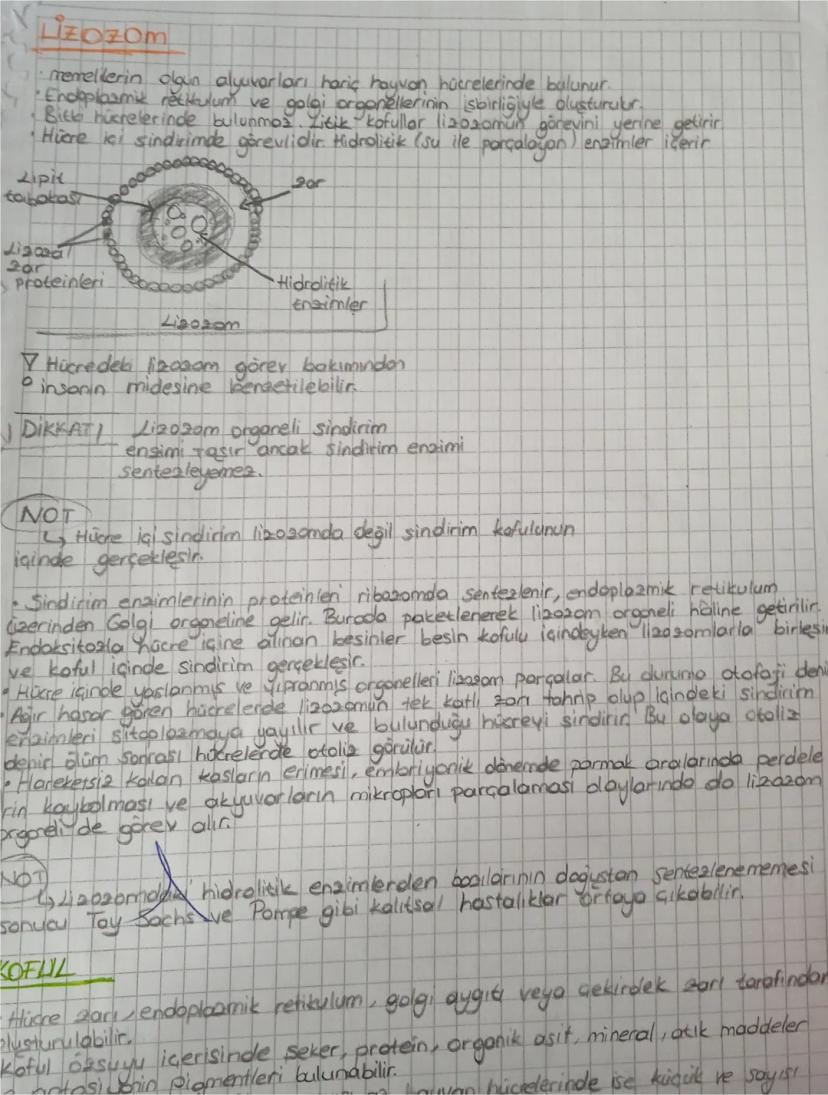 LİZOZOM
· memelilerin olgun alyuvarları hariç hayvan hücrelerinde bulunur.
· Endoplazmik retikulum ve golgi organellerinin işbirliğiyle oluşturulur.
· Bitki hücrelerinde bulunmaz. Litik kofullar lizozomun görevini yerine getirir
· Hücre içi sindirimde görevlidir Hidrolitik (su ile parçalayan) enzimler içerir
Lipit
tabakası
zar
Lizozal
zar
proteinleri
Hidrolitik
Enzimler
Lizozom
Hücredeki lizozom görev bakımından
insanın midesine benzetilebilir.
DİKKAT! Lizozom organeli sindirim
enzimi taşır ancak sindirim enzimi
sentezleyemez.
NOT
↳ Hücre içi sindirim lizozomda değil sindirim kofulunun
içinde gerçekleşir.
· Sindirim enzimlerinin proteinleri ribozomda sentezlenir, endoplazmik retikulum
üzerinden Golgi organeline gelir. Burada paketlenerek lizozom organeli haline getirilir.
Endoksitozla hücre içine alınan besinler besin kofulu içindeyken lizozomlarla birleşir
ve koful içinde sindirim gerçekleşir.
· Hücre içinde yaşlanmış ve yıpranmış organelleri lizozom parçalar. Bu duruma otofaji deni
· Ağır hasar gören hücrelerde lizozomun tek katlı zarı tahrip olup içindeki sindirim
enzimleri sitoplazmaya yayılır ve bulunduğu hücreyi sindirir. Bu olaya otoliz
denir ölüm sonrası hücrelerde otoliz görülür.
· Hareketsiz kalan kasların erimesi, embriyonik dönemde parmak aralarında perdele
rin kaybolması ve akyuvarların mikropları parçalaması olaylarında da lizozom
organeli de görev alır.
NOT
↳ Lizozomdaki hidrolitik enzimlerden bazılarının doğuştan sentezlenememesi
sonucu Tay Sachs ve Pompe gibi kalıtsal hastalıklar ortaya çıkabilir.
KOFUL
· Hücre zarı, endoplazmik retikulum, golgi aygıtı veya çekirdek zarı tarafından
oluşturulabilir.
Koful özsuyu içerisinde şeker, protein, organik asit, mineral, atık maddeler
pigmentleri bulunabilir.
hücrelerinde ise küçük ve sayısı